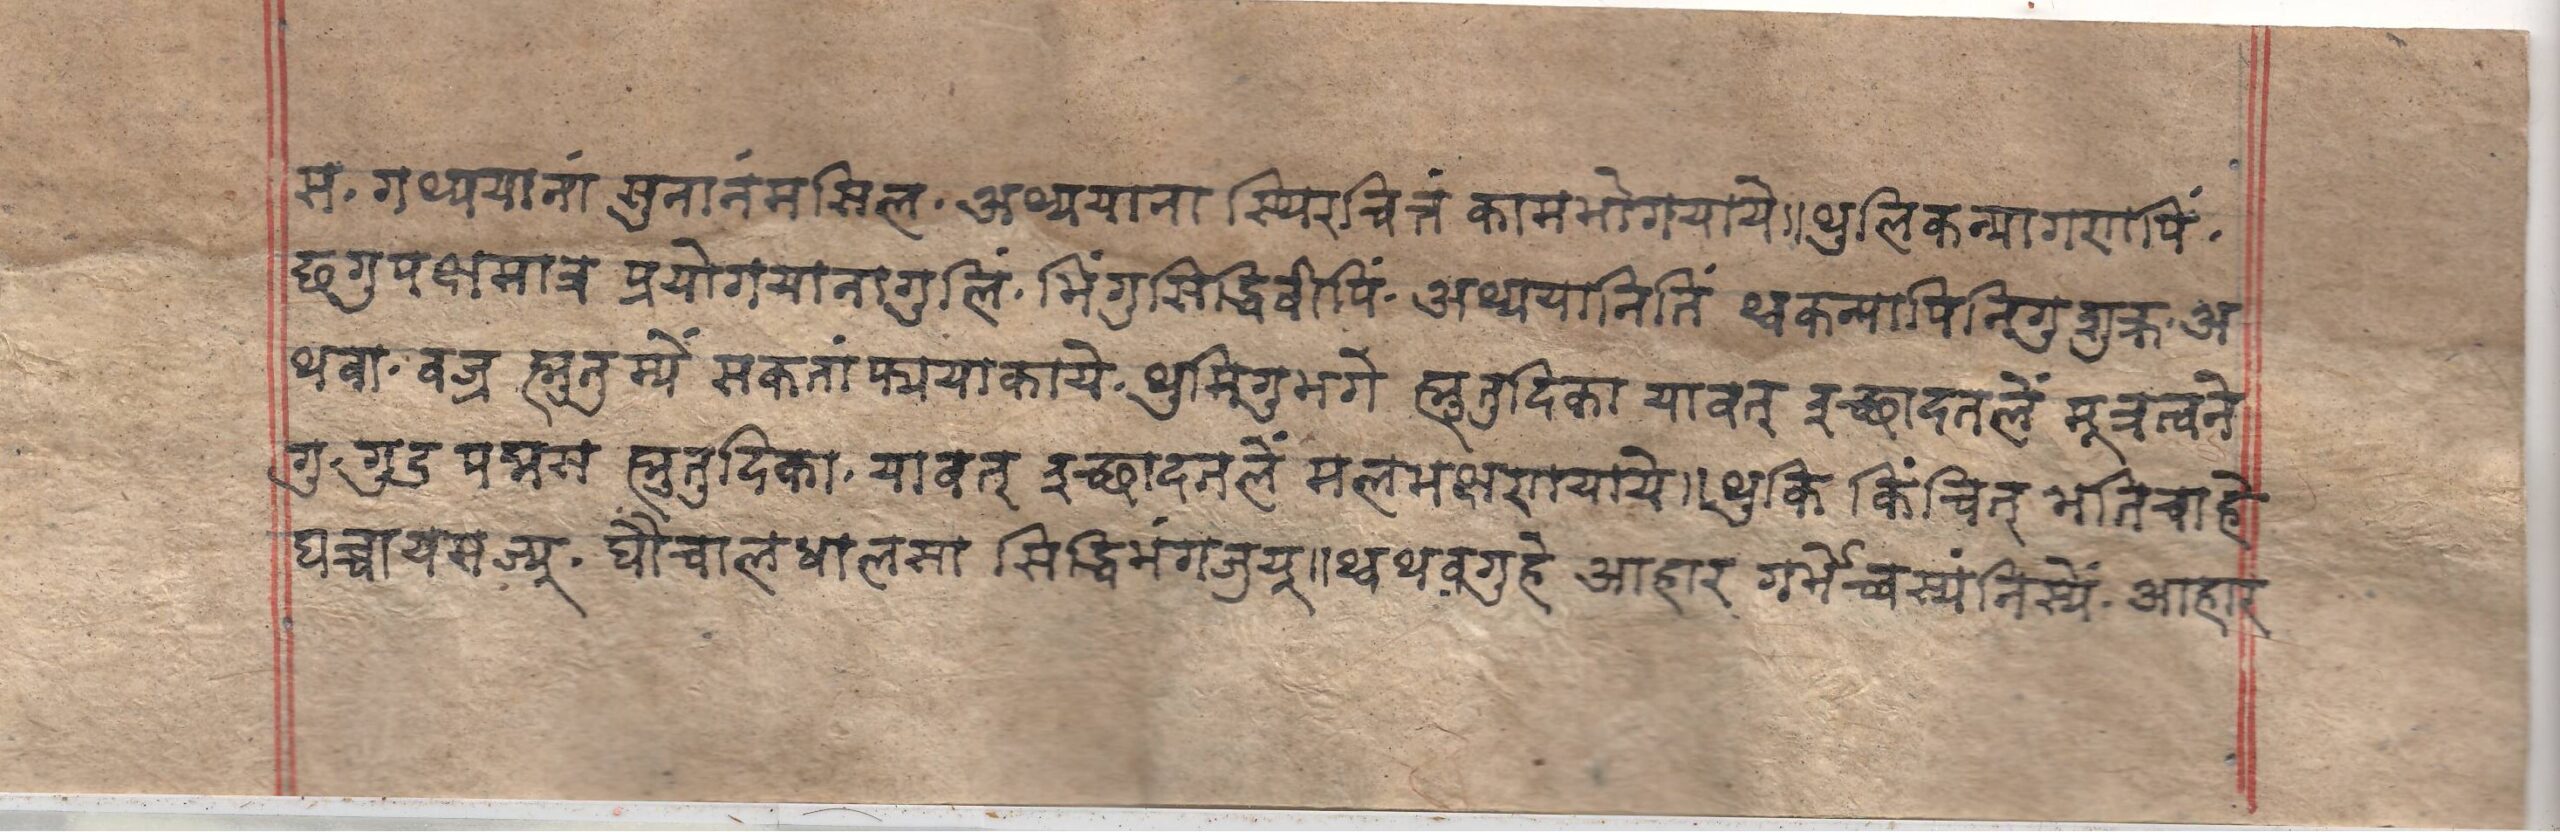 स. गथ्ययानां सुनानंमसिल. अथ्ययाना स्थिरचित्तं कामभोगयाये॥ थुलिकन्यागणपिं.
छगुपक्षमात्र प्रयोगयानागुलिं. भिंगुसिद्धिवीपिं. अथ्ययानितिं थ्वकन्यापिनिगु शुक्र. अ
थवा. वज्र ह्मुतुम्यें सकतां फ्यायाकाये. थुमिगुभगे ह्मुतुदिका यावत् इच्छादतलें मूत्रत्वने
गु. गुद पद्मस ह्मुतुदिका. यावत् इच्छादतलें मलभक्षणयाये॥ थुकि किंचित् भतिचाहे
घच्चायमज्यू. घौचालधालसा सिद्धिभंगजुयू॥ थ्वथवगुहे आहार गर्भेच्वस्यंनिस्यें. आहार